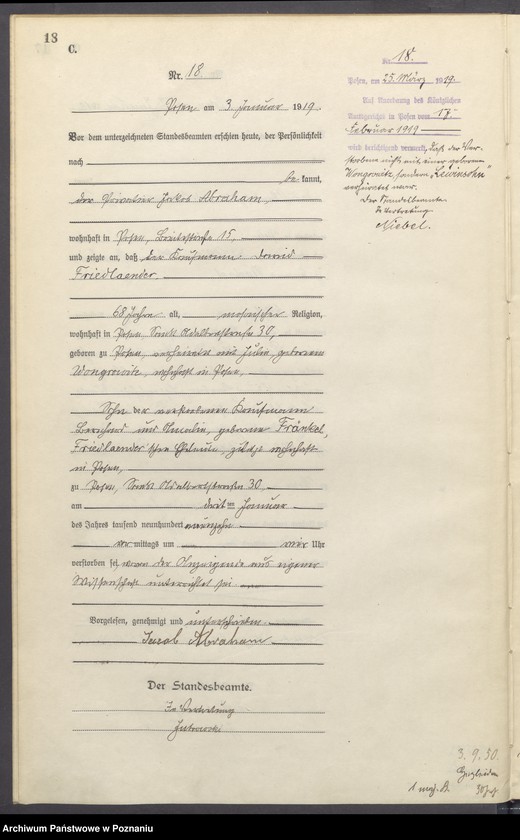 18
C.
Nr. 18.
Posen, am 3. Januar 1919.
Vor dem unterzeichneten Standesbeamten erschien heute, der Persönlichkeit
nach
be kannt,
der Privatier Jakob Abraham,
wohnhaft in Posen, Breitestraße 15,
und zeigte an, daß der Kaufmann David
Friedlaender,
68 Jahre alt, mosaischer Religion,
wohnhaft in Posen, Sankt Adalbertstraße 30,
geboren zu Posen, verheiratet mit Julie, geborenen
Wongrowitz, wohnhaft in Posen,
Sohn der verstorbenen Kaufmann
Bernhard und Amalie, geborene Fränkel,
Friedlaender'schen Eheleute, zuletzt wohnhaft
in Posen,
zu Posen, Sankt Adalbertstraße 30,
am dritten Januar
des Jahres tausend neunhundert neunzehn
vor mittags um vier Uhr
verstorben sei, wovon der Anzeigende aus eigener
Wissenschaft unterrichtet sei.
Vorgelesen, genehmigt und unterschrieben.
Jacob Abraham
Der Standesbeamte.
In Vertretung
Nr. 18.
Posen, am 25. März 1919.
Auf Anordnung des Königlichen
Amtsgerichts in Posen vom 17.
Februar 1919
wird berichtigend vermerkt, daß der Ver-
storbene nicht mit einer geborenen
Wongrowitz, sondern "Lewinsohn"
verheiratet war.
Der Standesbeamte
In Vertretung
Niebel.
3. 9. 30.
Archiwum Państwowe w Poznaniu